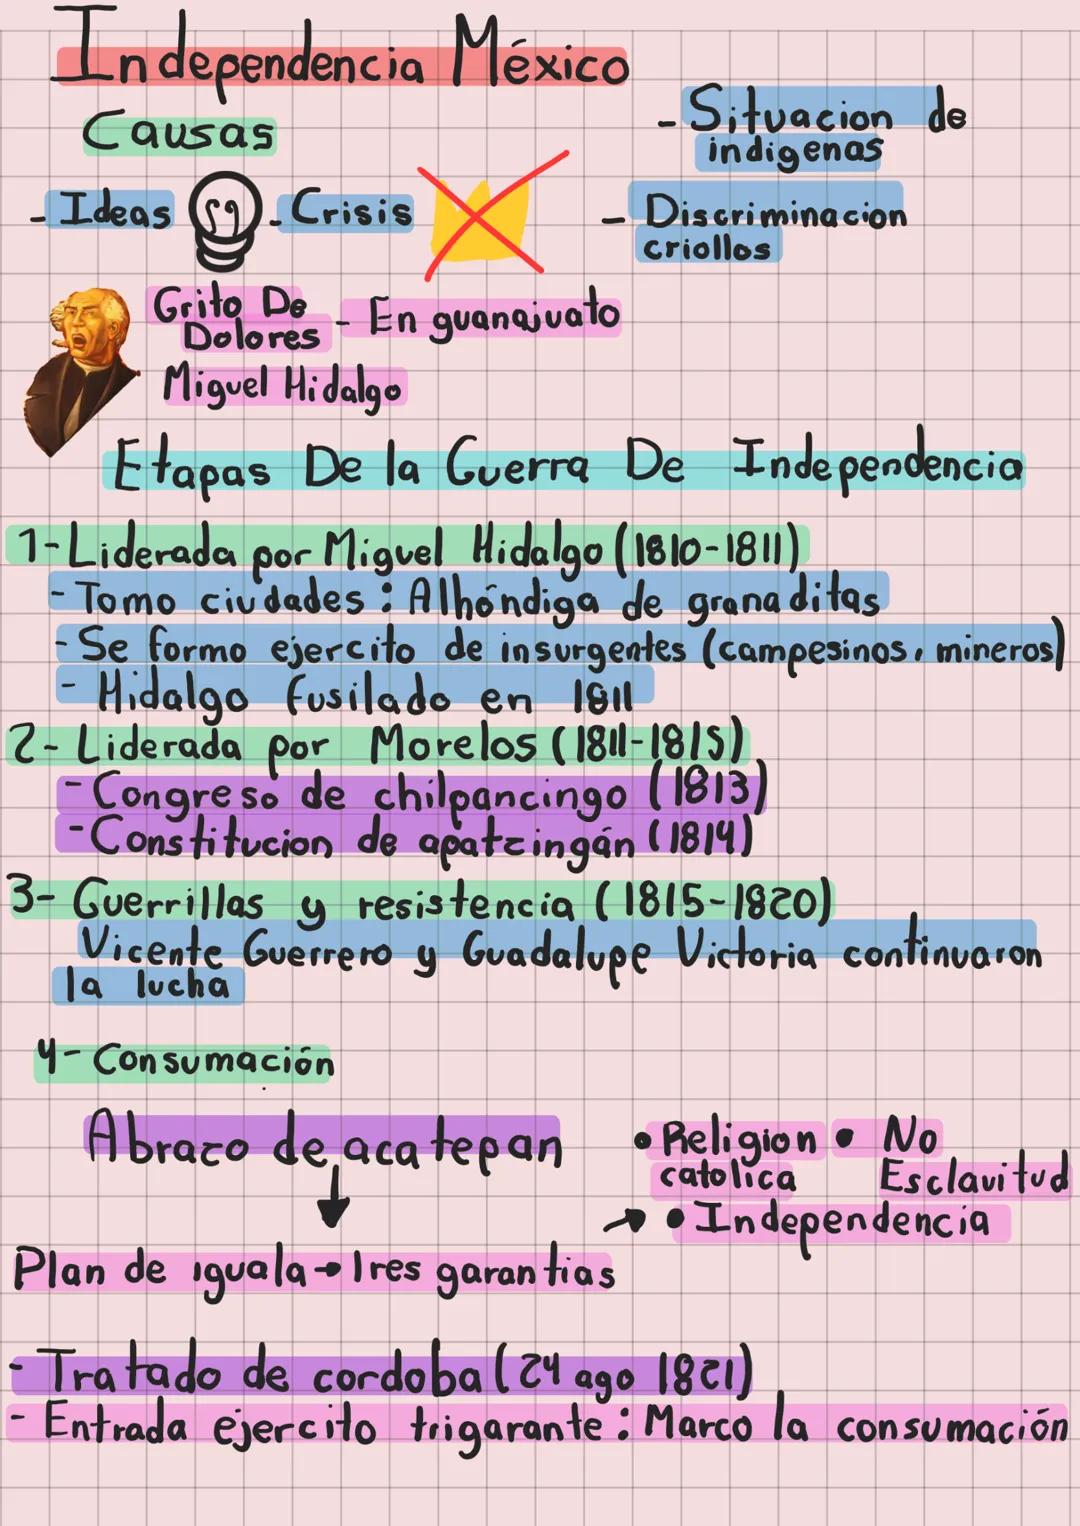 Independencia México
Causas
- Ideas
- Crisis
- Situacion de
indigenas
- Discriminacion
criollos
Grito De
Dolores
- En guanajuato
Miguel Hidalgo
Etapas De la Guerra De Independencia
1-Liderada por Miguel Hidalgo (1810-1811)
- Tomo ciudades : Alhóndiga de granaditas
- Se formo ejercito de insurgentes (campesinos, mineros)
- Hidalgo fusilado en 1811
2- Liderada por Morelos (1811-1815)
- Congreso de chilpancingo (1813)
- Constitucion de apatzingán (1814)
3- Guerrillas y resistencia (1815-1820)
Vicente Guerrero y Guadalupe Victoria continuaron
la lucha
4- Consumación
Abrazo de acatepan
• Religion
catolica
• No
Esclavitud
→ • Independencia
Plan de iguala → Tres garantias
- Tratado de cordoba (24 ago 1821)
- Entrada ejercito trigarante : Marco la consumación